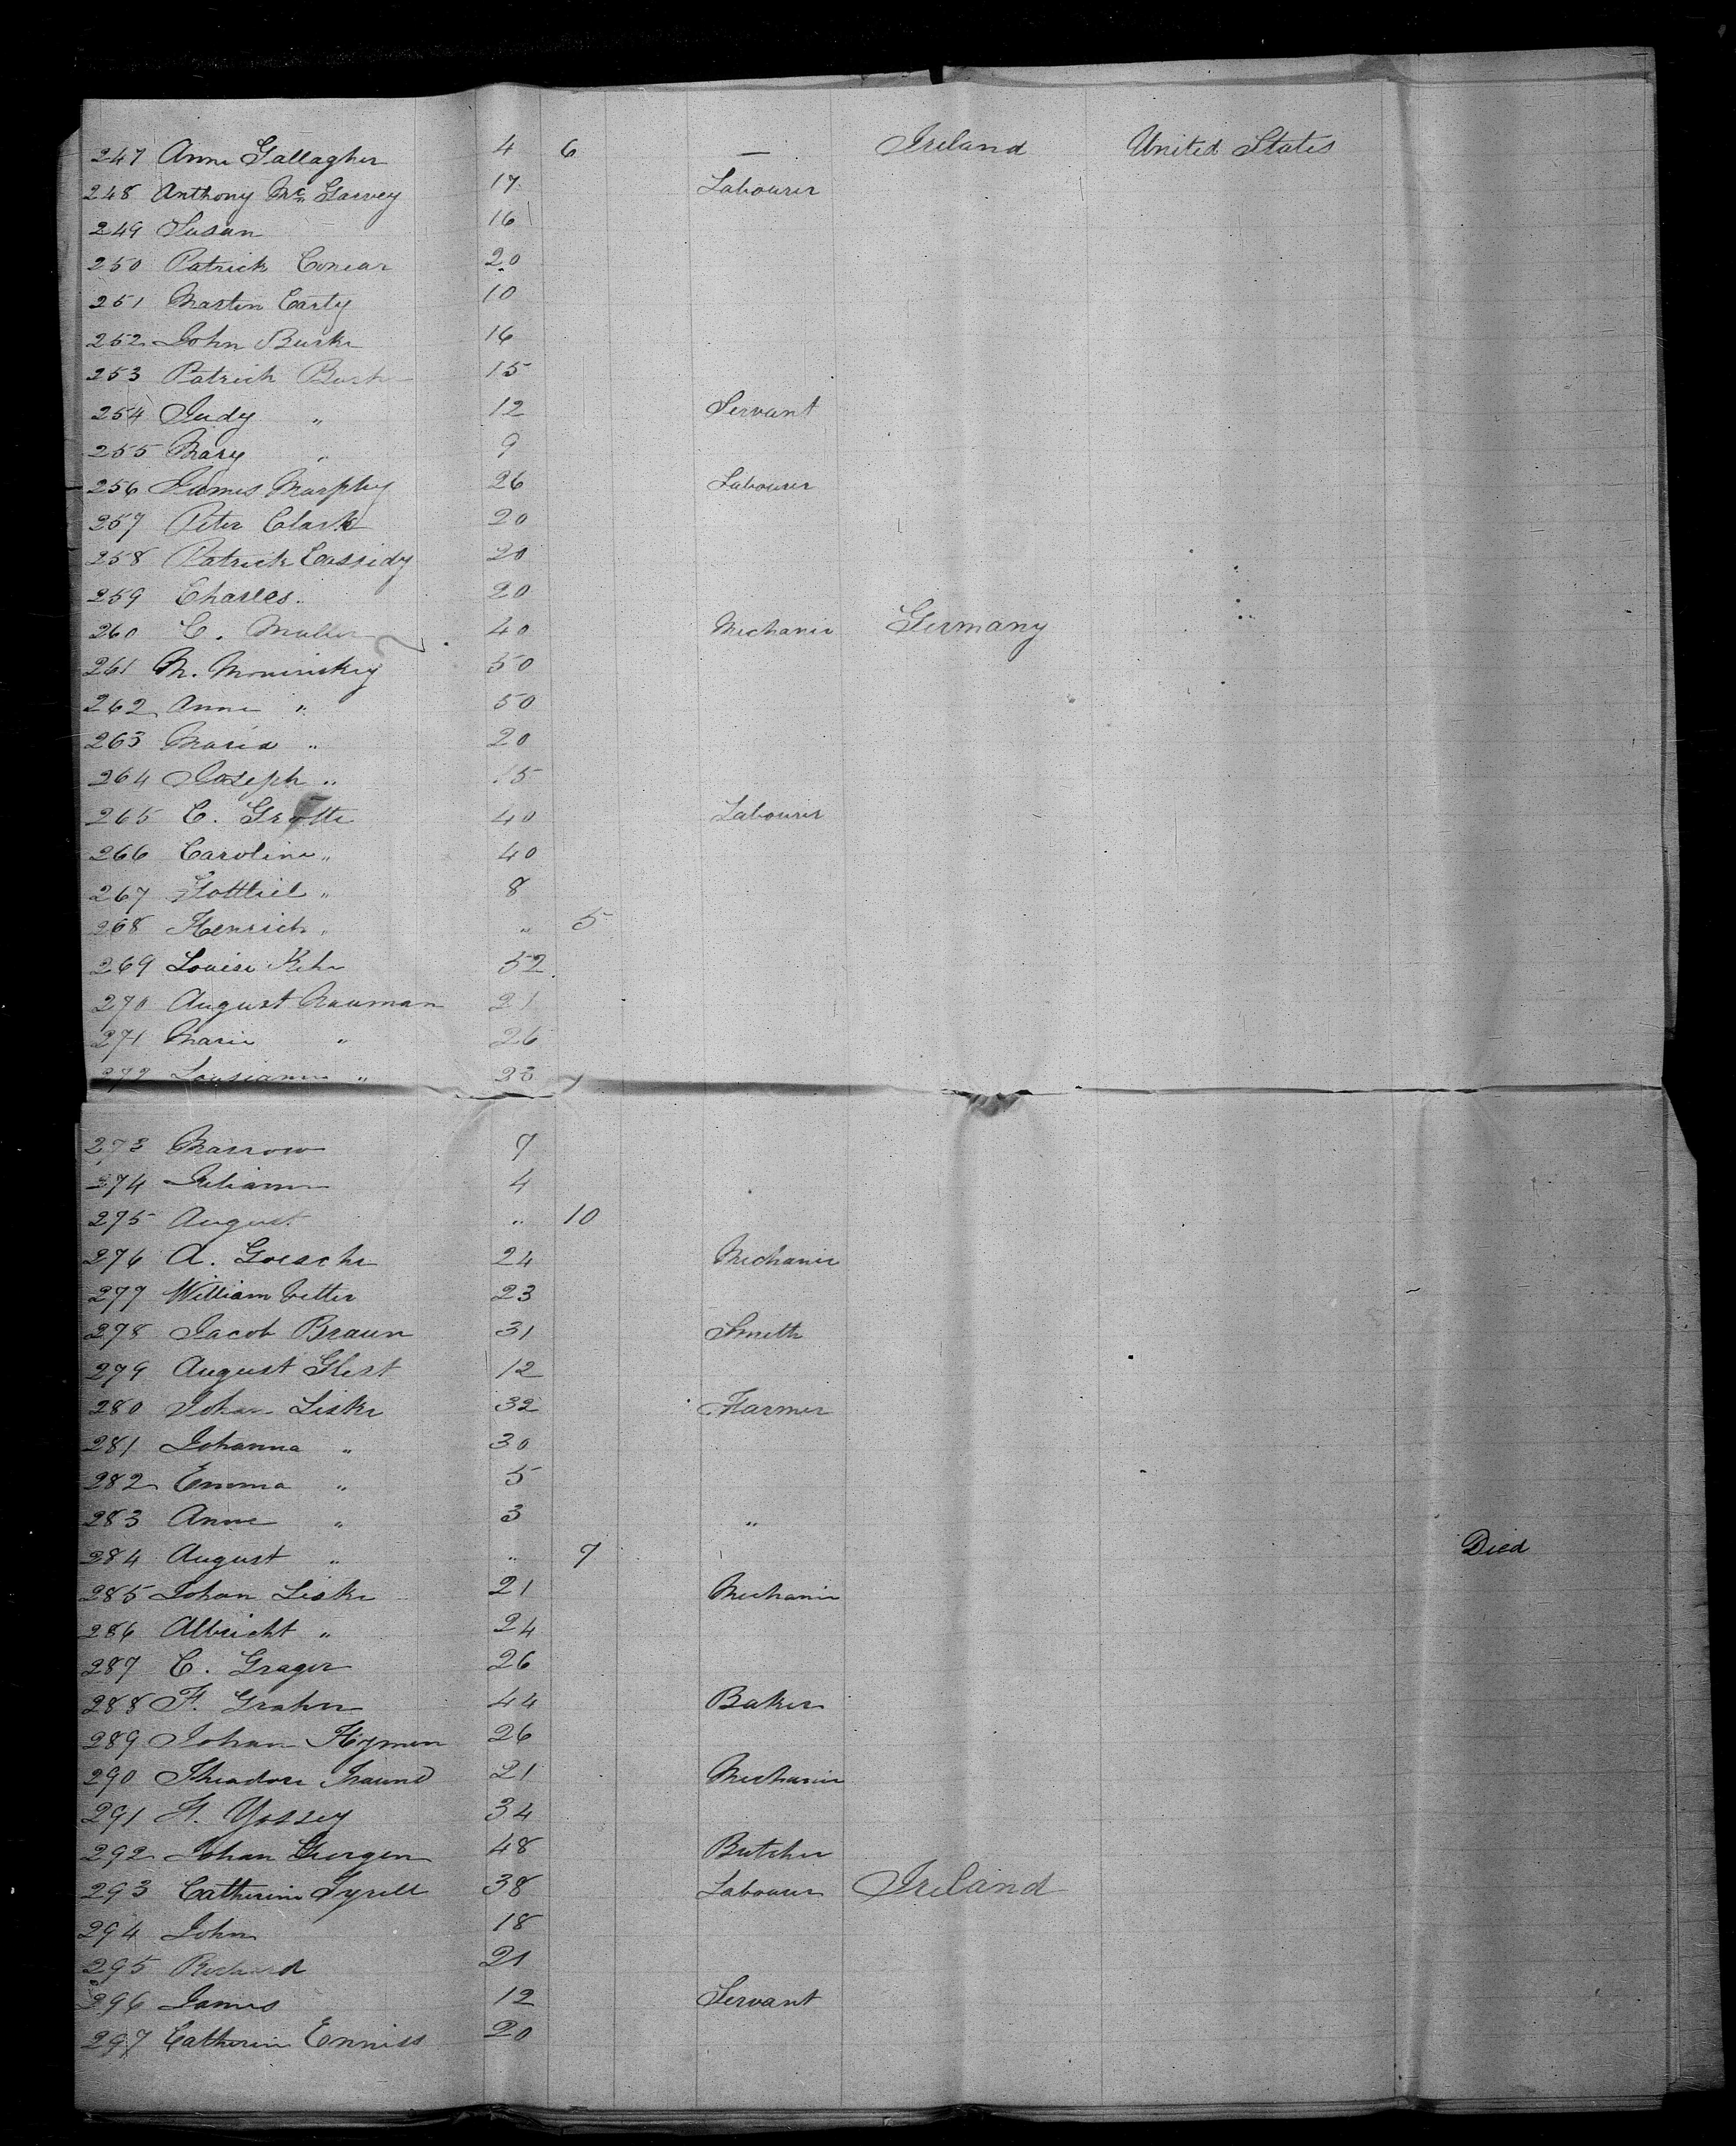 247 Anne Gallagher 4 6 — Ireland United States
248 Anthony Mc Garvey 17 Labourer
249 Susan 16
250 Patrick Conear 20
251 Martin Carty 10
252 John Burke 16
253 Patrick Burk 15
254 Judy " 12 Servant
255 Mary " 9
256 James Murphy 26 Labourer
257 Peter Clark 20
258 Patrick Cassidy 20
259 Charles. 20
260 C. Muller 40 Mechanic Germany
261 M. Moninskey 50
262 Anne " 50
263 Maria " 20
264 Joseph " 15
265 C. Grotte 40 Labourer
266 Caroline " 40
267 Gottliel " 8
268 Henrich " " 5
269 Louise 52
270 August Nauman 21
271 Marie " 26
272 Lousianne " 23
273 7
274 Juliann 4
275 August " 10
276 A. Goesche 24 Mechanic
277 William Vetter 23
278 Jacob Braun 31 Smith
279 August Glest 12
280 Johan Liske 32 Farmer
281 Johanna " 30
282 Emma " 5
283 Anne " 3 "
284 August " " 7 Died
285 Johan Liske 21 Mechanic
286 Albricht " 24
287 C. Grager 26
288 F. Grahn 44 Baker
289 Johan Hymen 26
290 Theodore 21 Mechanic
291 H. Yossey 34
292 Johan Gurgen 48 Butcher
293 Catherine Tyrell 38 Labourer Ireland
294 John 18
295 Richard 21
296 James 12 Servant
297 Catherine Enniss 20